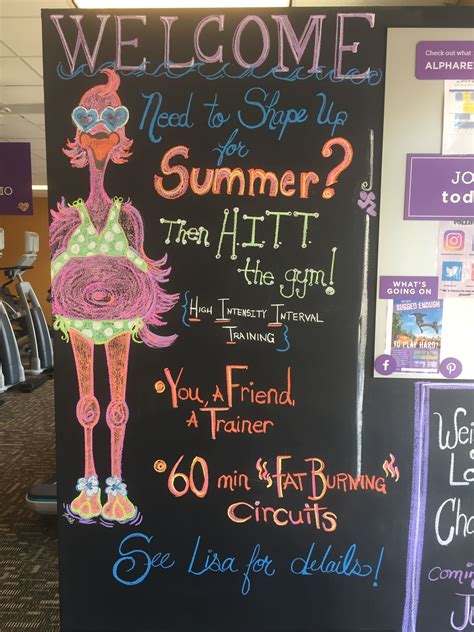 WELCOME
Need to Shape Up
for
Summer?
Then HITT
the gym!
{High Intensity Interval
Training}
• You, a Friend,
a Trainer
• 60 min "Fat Burning"
Circuits
See Lisa for details!
Check out what
ALPHARE
JO
tod
WHAT'S
GOING ON
RUGGED ENOUGH
TO PLAY HARD?
Wei
Lo
Cha
Coming
J
IO